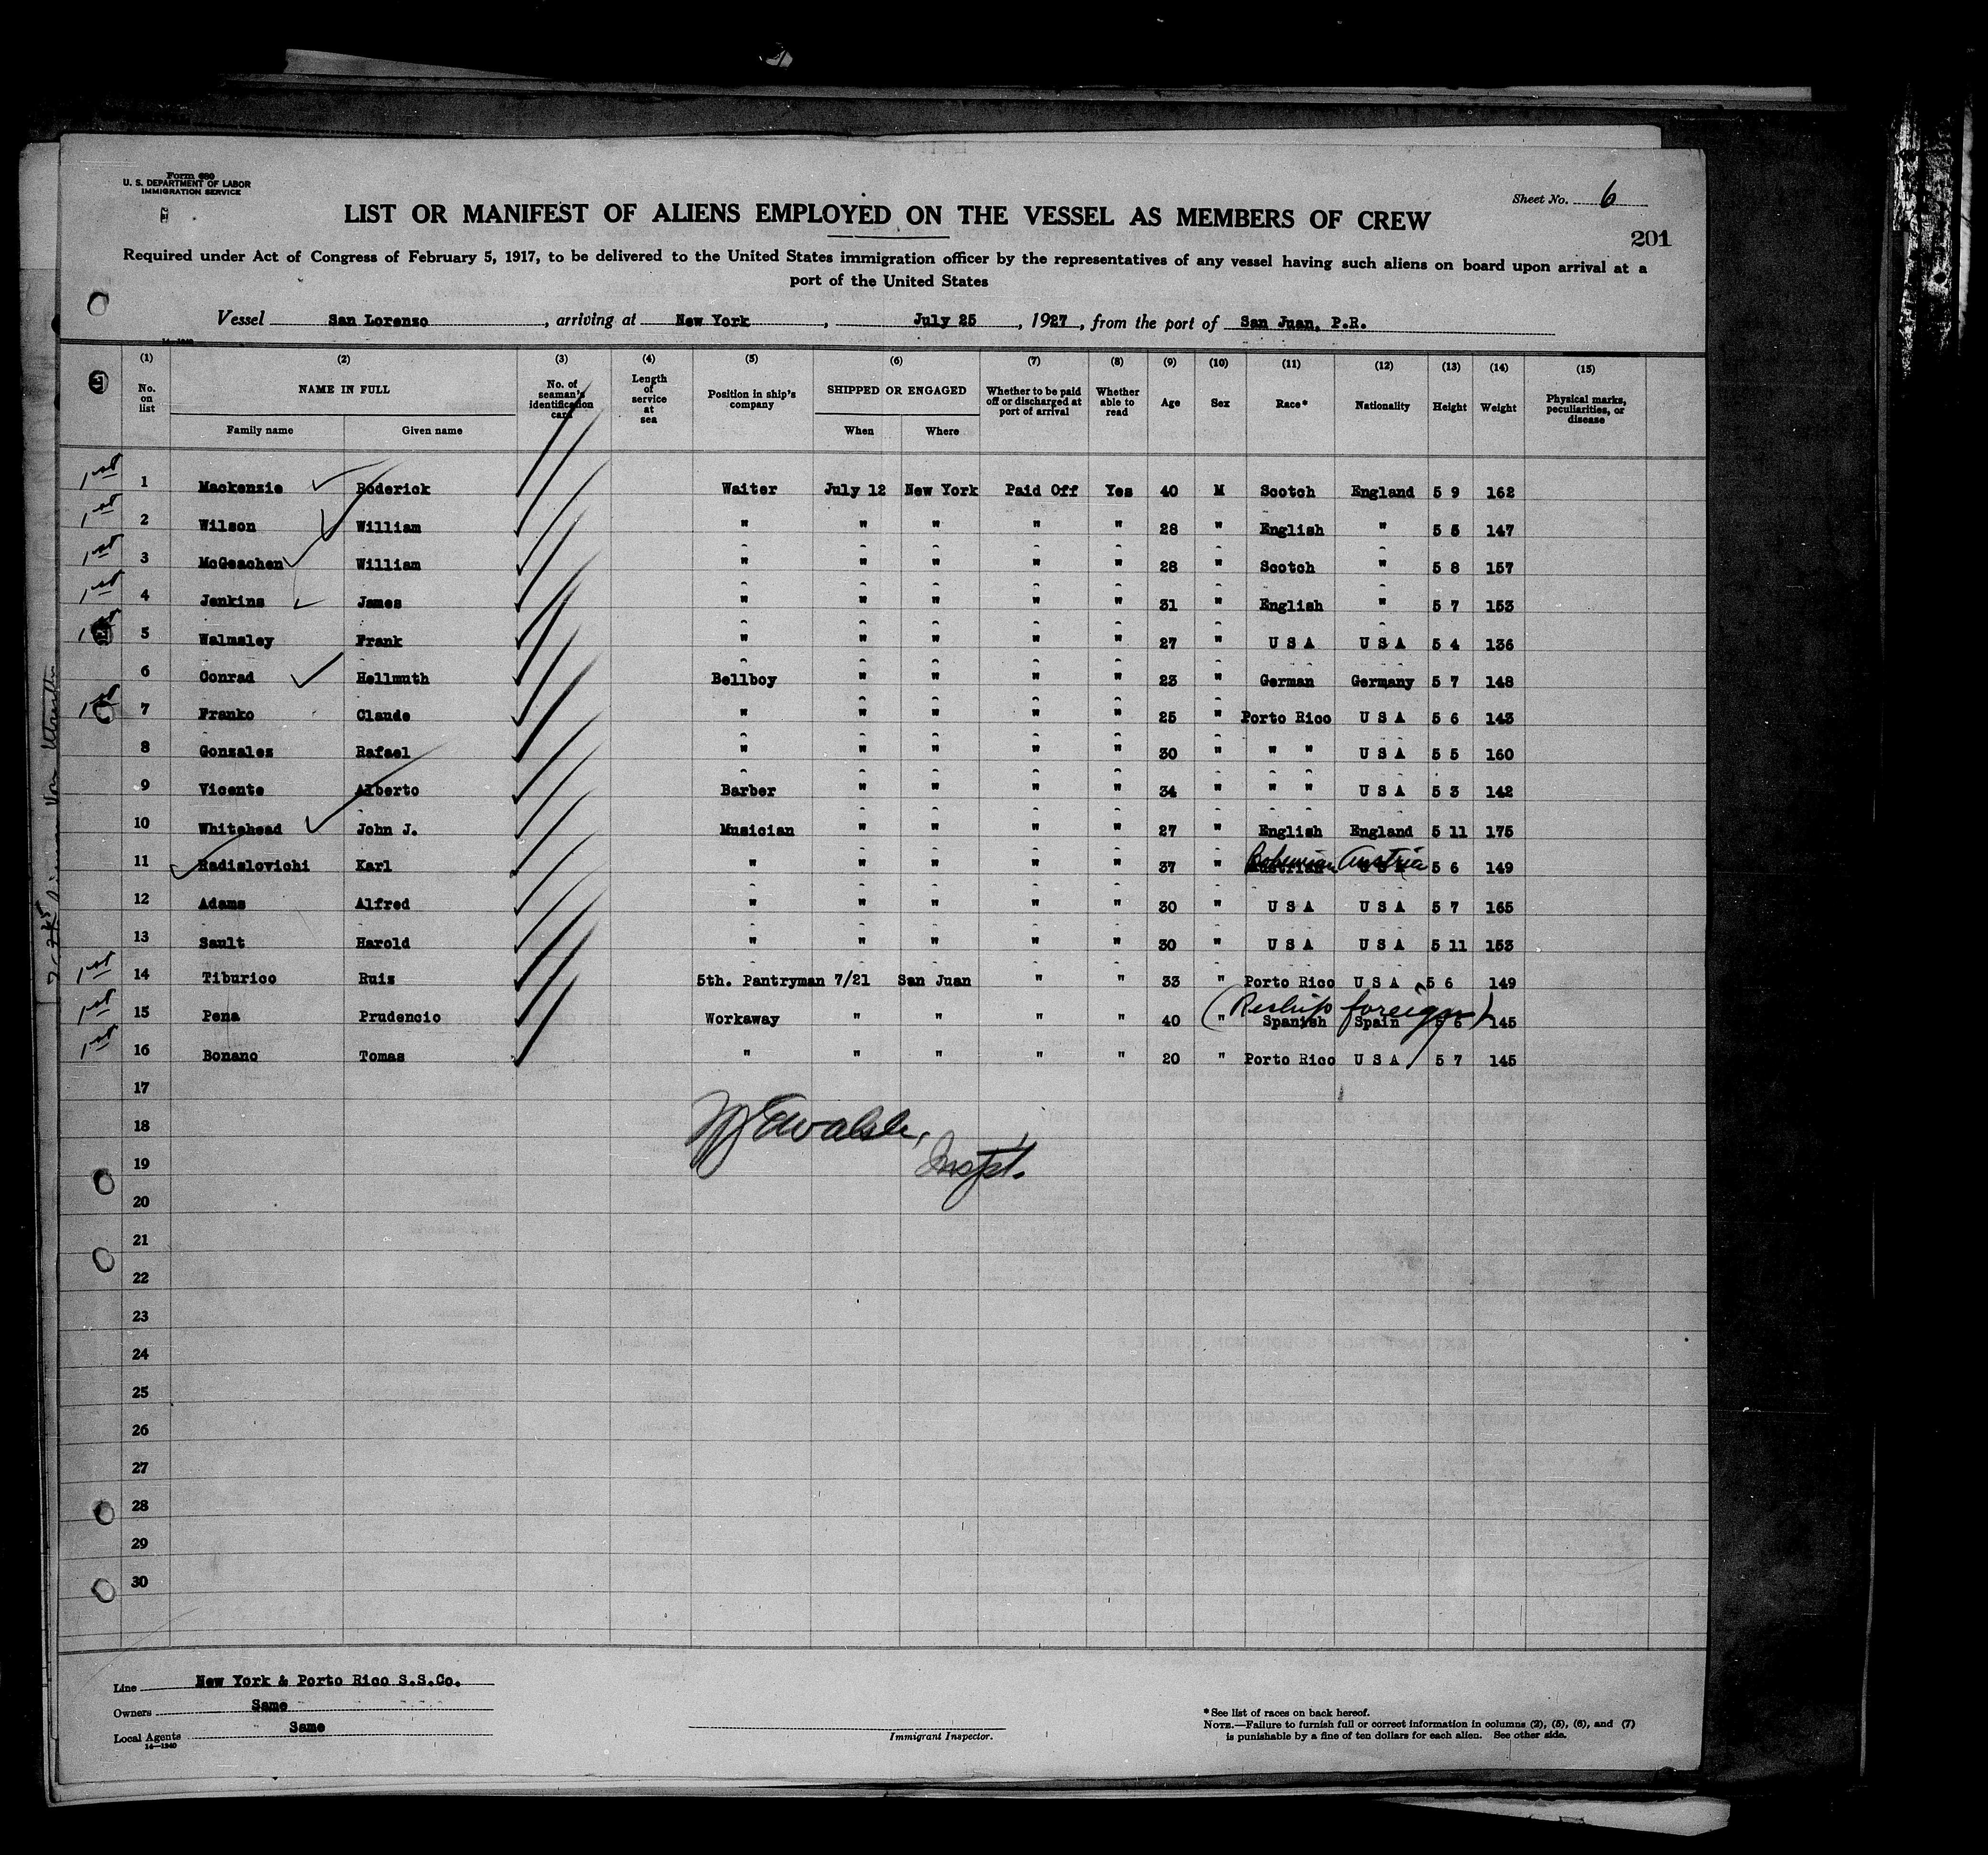 Form 680
U. S. DEPARTMENT OF LABOR
IMMIGRATION SERVICE
Sheet No. 6
LIST OR MANIFEST OF ALIENS EMPLOYED ON THE VESSEL AS MEMBERS OF CREW
201
Required under Act of Congress of February 5, 1917, to be delivered to the United States immigration officer by the representatives of any vessel having such aliens on board upon arrival at a
port of the United States
Vessel San Lorenzo, arriving at New York, July 25, 1927, from the port of San Juan, P.R.
14—1240
(1) (2) (3) (4) (5) (6) (7) (8) (9) (10) (11) (12) (13) (14) (15)
No. on list NAME IN FULL Family name Given name No. of seaman's identification card Length of service at sea Position in ship's company SHIPPED OR ENGAGED When Where Whether to be paid off or discharged at port of arrival Whether able to read Age Sex Race* Nationality Height Weight Physical marks, peculiarities, or disease
1st 1 Mackenzie Roderick Waiter July 12 New York Paid Off Yes 40 M Scotch England 5 9 162
1st 2 Wilson William " " " " " 28 " English " 5 5 147
1st 3 McGeachen William " " " " " 28 " Scotch " 5 8 157
1st 4 Jenkins James " " " " " 31 " English " 5 7 153
1st 5 Walmsley Frank " " " " " 27 " U S A U S A 5 4 136
6 Conrad Hellmuth Bellboy " " " " 23 " German Germany 5 7 148
1st 7 Franko Claude " " " " " 25 " Porto Rico U S A 5 6 143
8 Gonzales Rafael " " " " " 30 " " " U S A 5 5 160
9 Vicente Alberto Barber " " " " 34 " " " U S A 5 3 142
10 Whitehead John J. Musician " " " " 27 " English England 5 11 175
11 Radislovichi Karl " " " " " 37 " Bohemian Austria 5 6 149
12 Adams Alfred " " " " " 30 " U S A U S A 5 7 165
13 Sault Harold " " " " " 30 " U S A U S A 5 11 153
1st 14 Tiburico Ruiz 5th. Pantryman 7/21 San Juan " " 33 " Porto Rico U S A 5 6 149
(Reship foreign)
1st 15 Pena Prudencio Workaway " " " " 40 " Spanish Spain 5 6 145
1st 16 Bonano Tomas " " " " " 20 " Porto Rico U S A 5 7 145
17
18
19 Inspt.
20
21
22
23
24
25
26
27
28
29
30
Line New York & Porto Rico S.S.Co.
Owners Same
Local Agents Same
14—1240
Immigrant Inspector.
* See list of races on back hereof.
NOTE.—Failure to furnish full or correct information in columns (2), (5), (6), and (7)
is punishable by a fine of ten dollars for each alien. See other side.